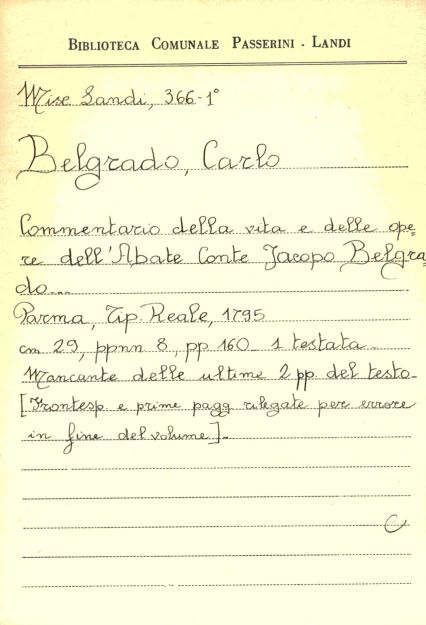 BIBLIOTECA COMUNALE PASSERINI - LANDI
Misc Landi, 366-1°
Belgrado, Carlo
Commentario della vita e delle ope=
re dell'Abate Conte Jacopo Belgra=
do...
Parma, Tip. Reale, 1795
cm 29, ppnn 8, pp 160_ 1 testata_
Mancante delle ultime 2 pp. del testo_
[Frontesp. e prime pagg rilegate per errore
in fine del volume]_
C